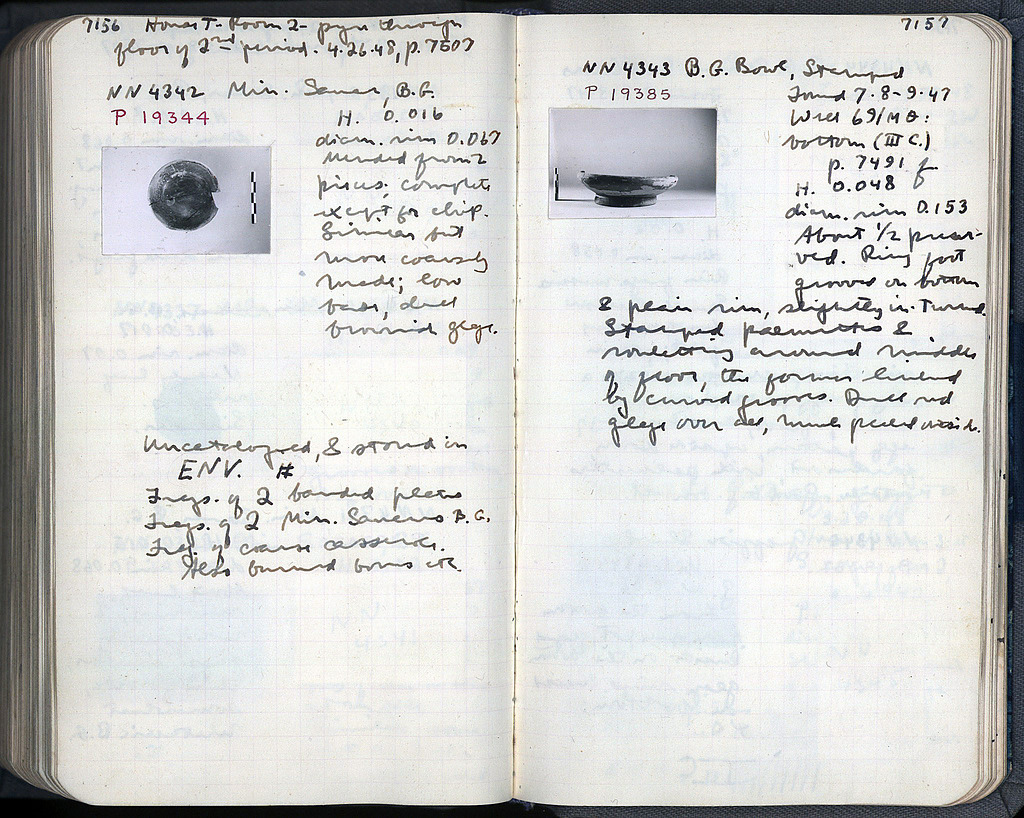 7156 House T- Room 2- pyre through
floor of 2nd period. 4.26.48, p. 7507
NN 4342 Min. Saucer, B.G.
P 19344
H. 0.016
diam. rim 0.067
Mended from 2
pieces; complete
except for chip.
Similar but
more coarsely
made; low
base, dull
brownish glaze.
Uncatalogued, & stored in
ENV. #
Frags. of 2 banded plates
Frags. of 2 Min. Saucers B.G.
Frag. of coarse casserole.
Also burned bones etc.
7157
NN 4343 B.G. Bowl, Stamped
P 19385
Found 7-8-9-47
Well 69/ΜΘ:
bottom (III C.)
p. 7491 f
H. 0.048
diam. rim 0.153
About 1/2 preser-
ved. Ring foot
grooved on bottom
& plain rim, slightly in-turned.
Stamped palmettes &
rouletting around middle
of floor, the former linked
by curved grooves. Dull red
glaze over all, much peeled outside.